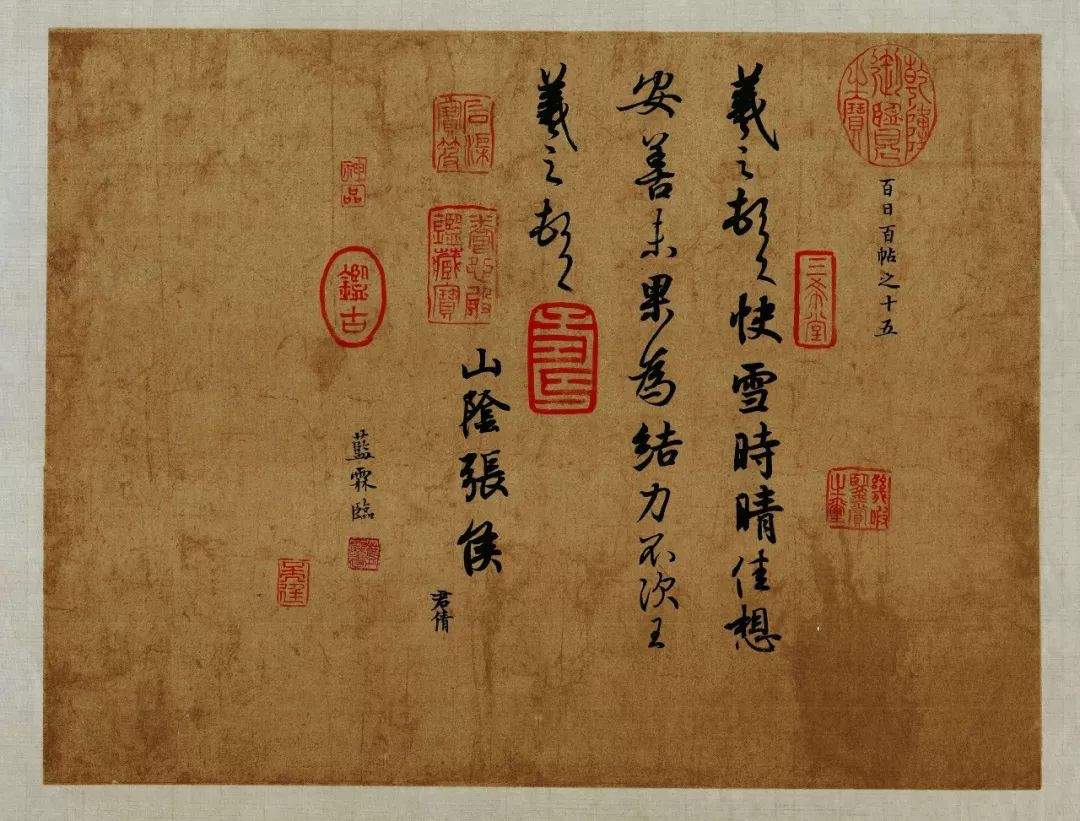 乾隆御覽之寶
百日百帖之十五
三希堂
幾暇鑒賞之璽
羲之頓首快雪時晴佳想
安善未果為結力不次王
羲之頓首
山陰張侯
君倩
石渠寶笈
養心殿鑑藏寶
神品
鑑古
藍霖臨